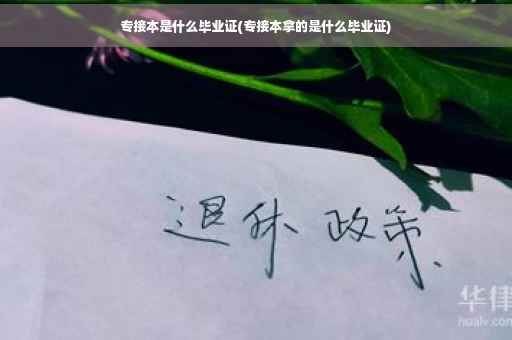 专接本是什么毕业证(专接本拿的是什么毕业证)
退休 政策
华律
hualv.com